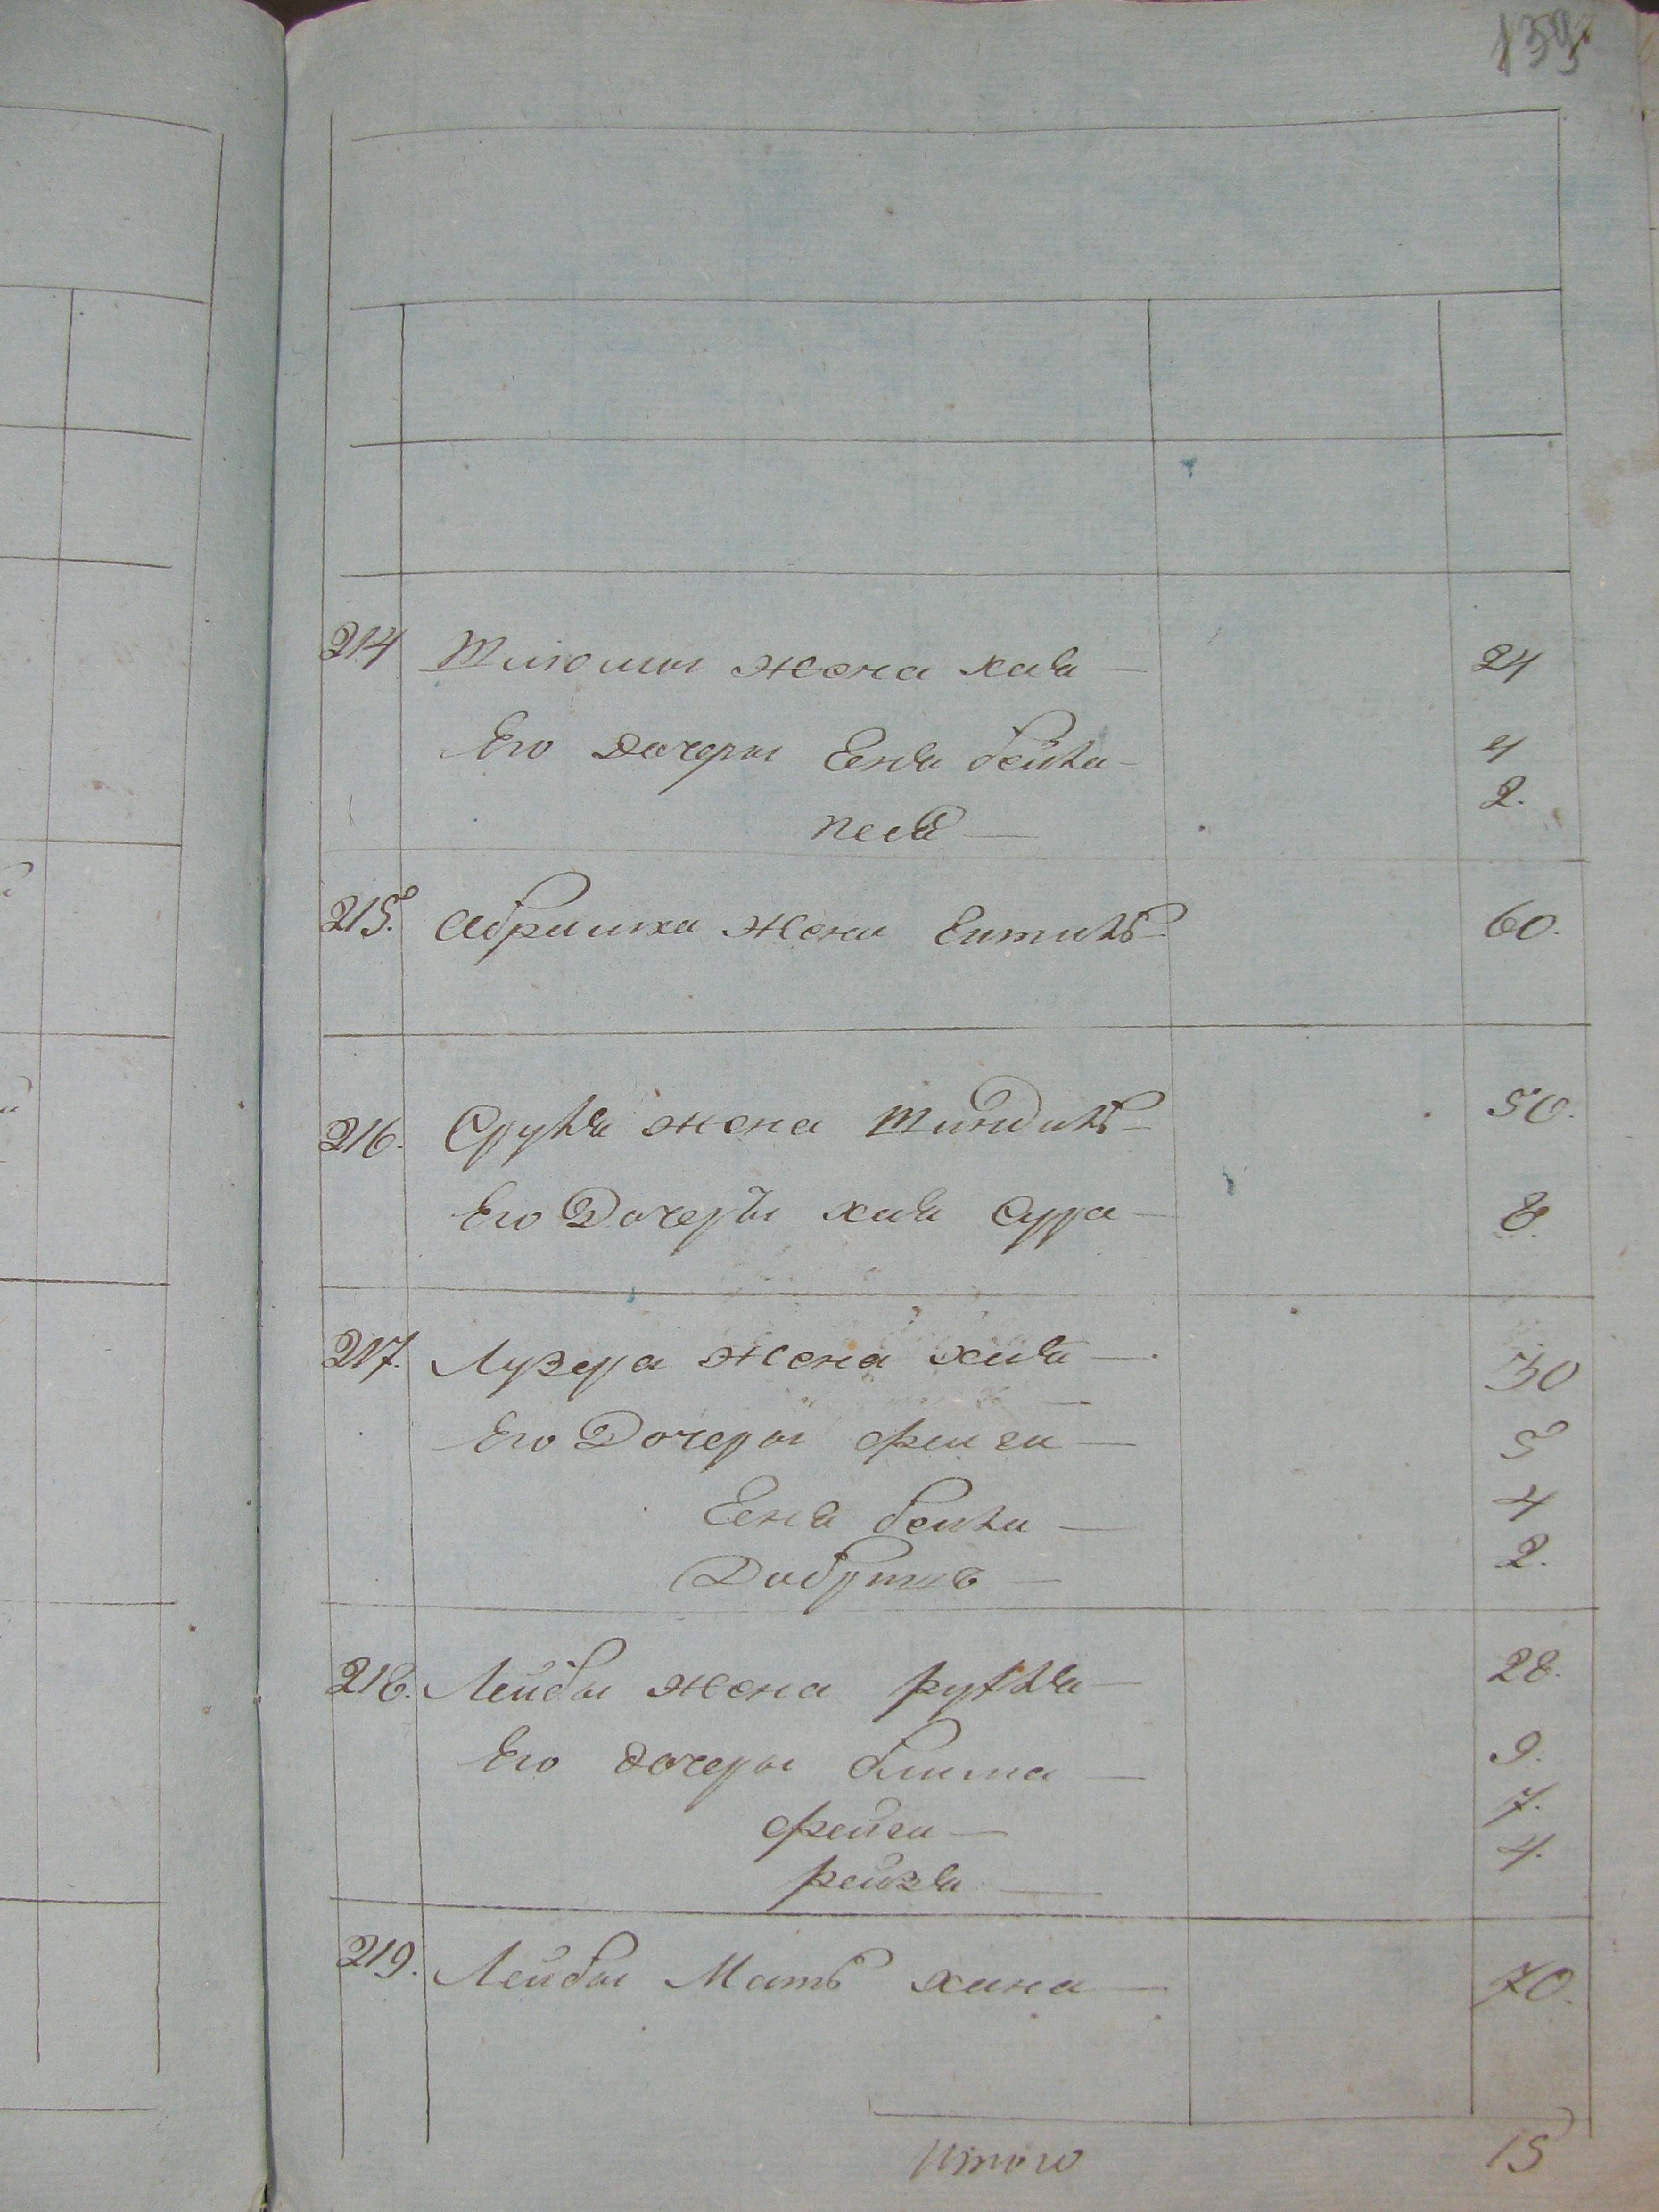 139
214 Шлiомы жена хава — 24
Его дочеры Енъя бейла — 4
песя — 2.
215. Абрамка жена Ентиль — 60.
216. Сруля жена Шиндиль — 50.
Его Дочеры хая Сура — 8.
217. Лузера жена хива — 30
Его Дочеры фейга — 5
Ення бейла — 4
Добришъ — 2.
218. Лейбы жена рухля — 28.
Его дочеры блима — 9.
фейга — 7.
рейзя — 4.
219. Лейбы Мать хана — 70.
Итого 15